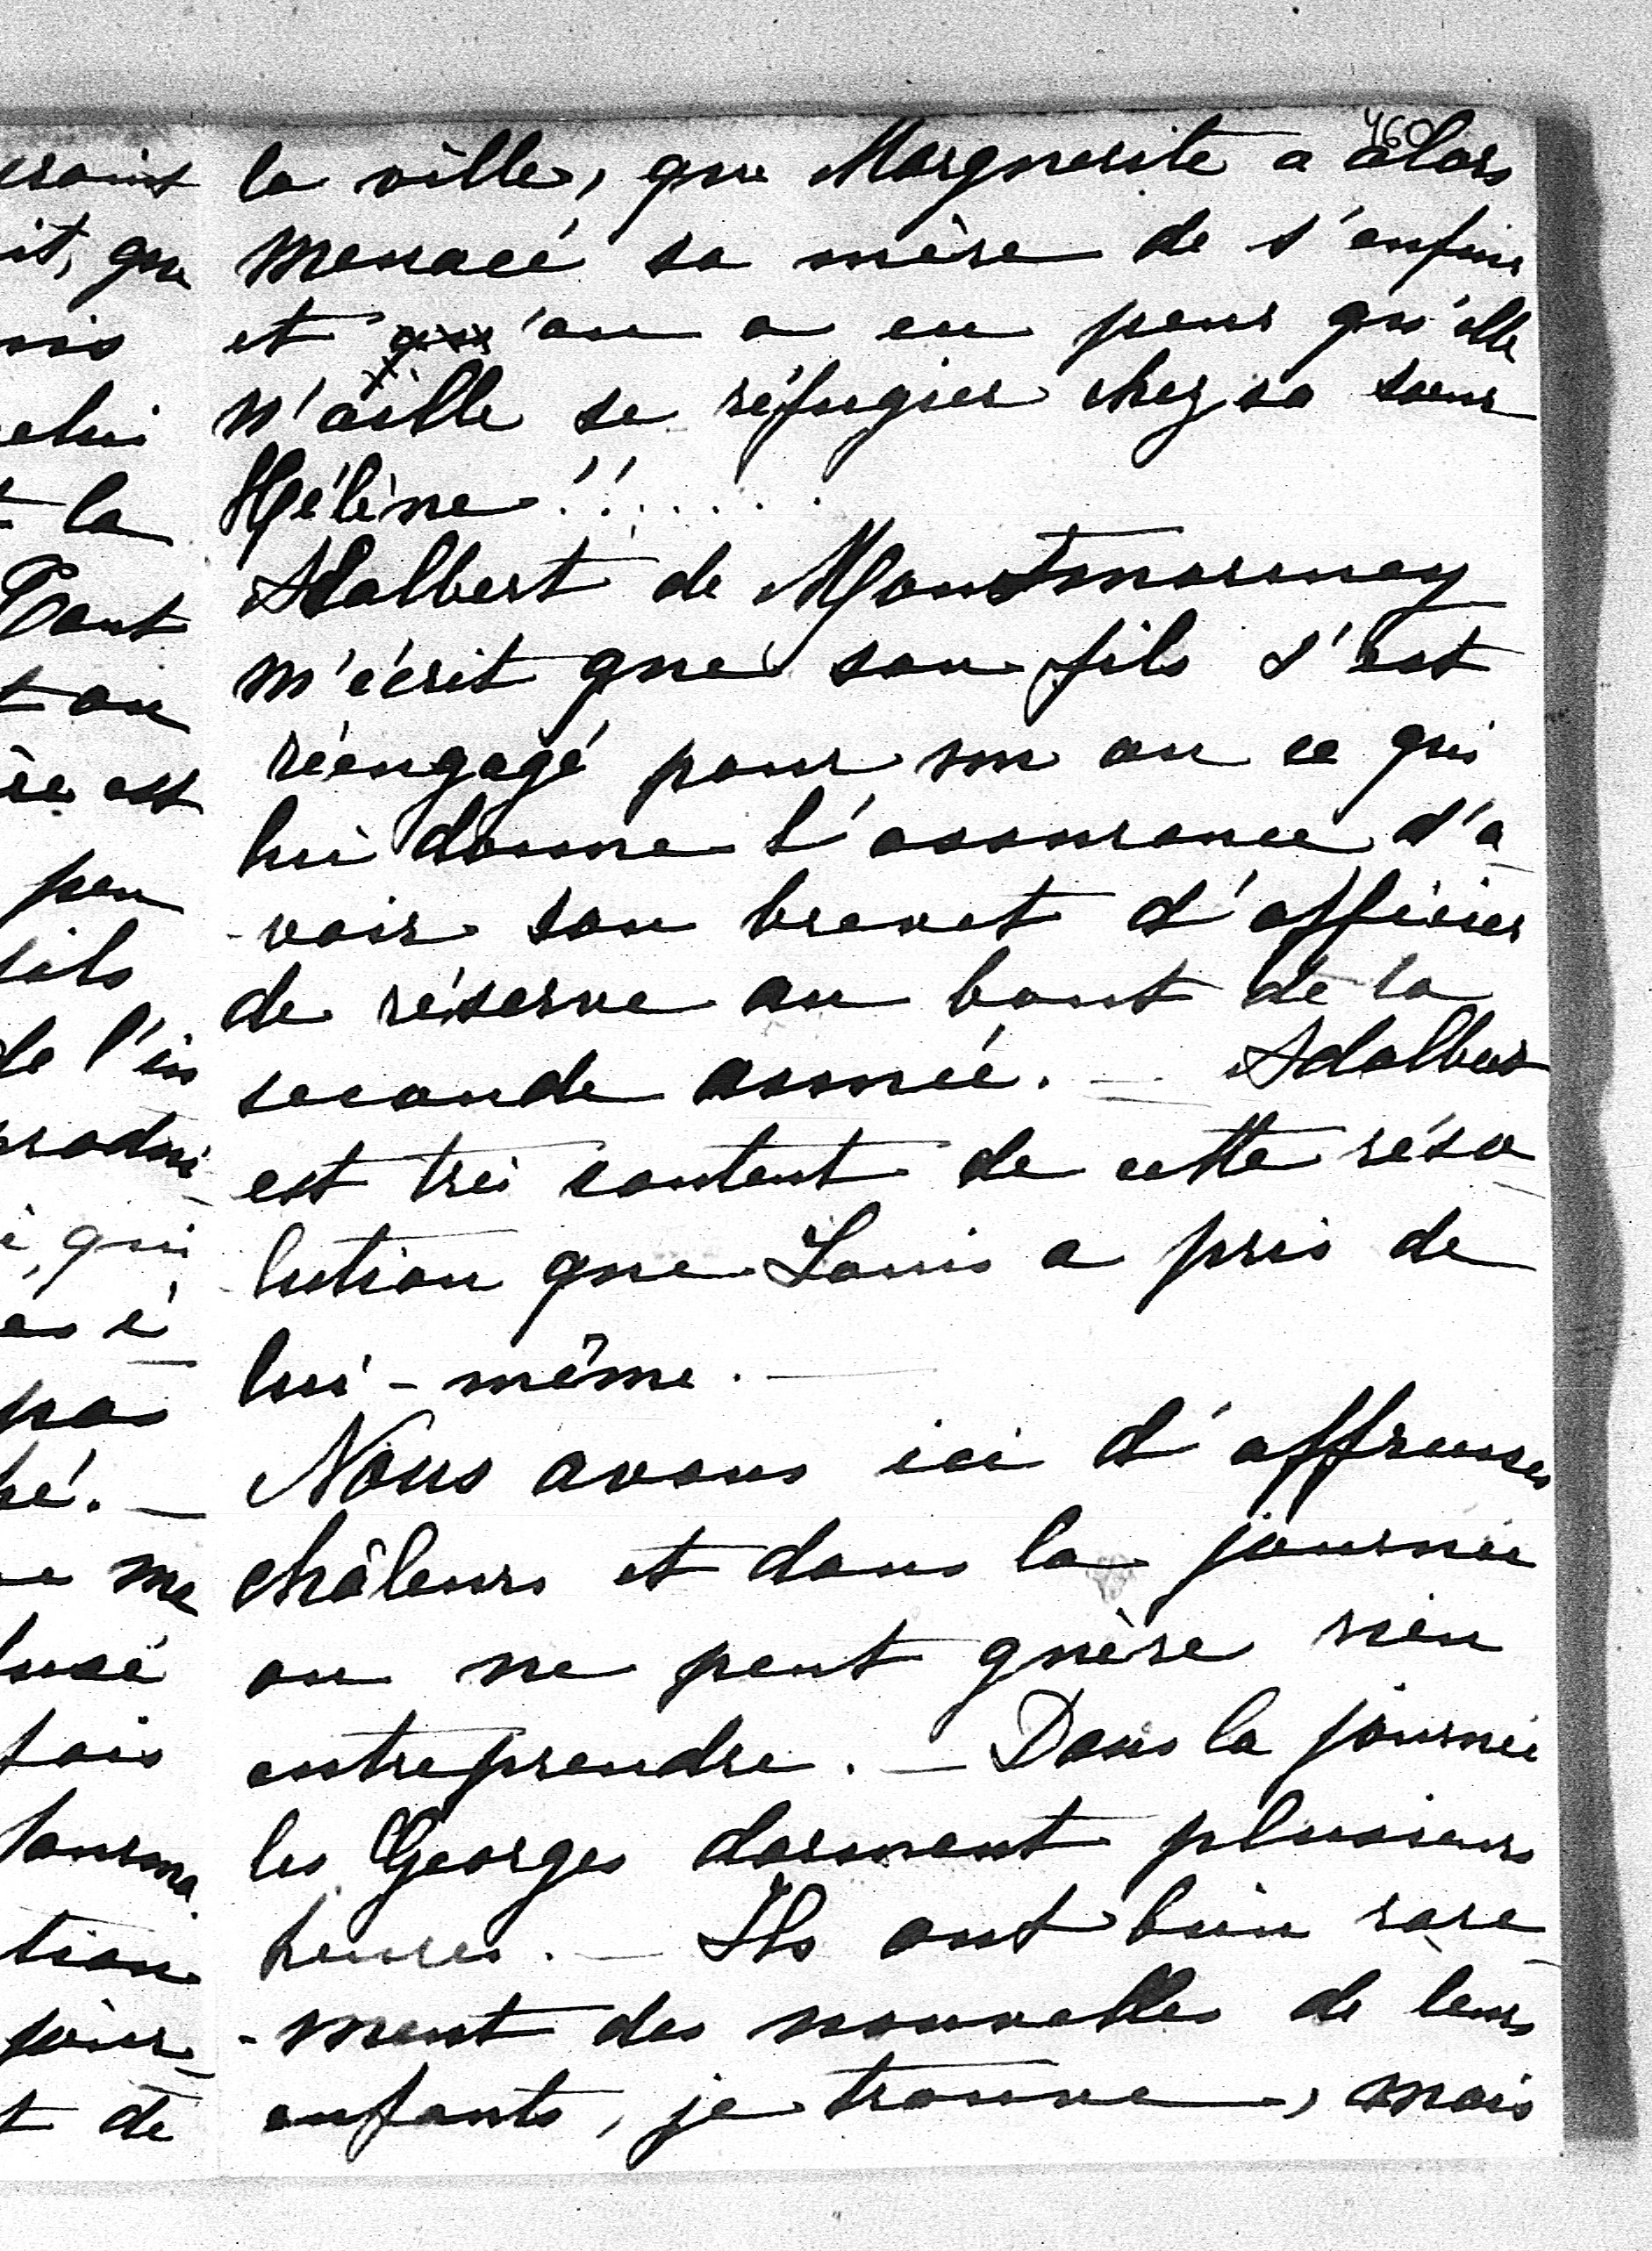 460
la ville, que Marguerite a alors
menacé sa mère de s'enfuir
et qu'on a eu peur qu'elle
n'aille se réfugier chez sa sœur
Hélène!!.....
Adalbert de Montmorency
m'écrit que son fils s'est
réengagé pour un an ce qui
lui donne l'assurance d'a
-voir son brevet d'officier
de réserve au bout de la
seconde année. — Adalbert
est très content de cette réso
lution que Louis a pris de
lui-même. —
Nous avons ici d'affreuses
châleurs et dans la journée
on ne peut guère rien
entreprendre. — Dans la journée
les Georges dorment plusieurs
heures. — Ils ont bien rare
-ment des nouvelles de leurs
enfants, je trouve, mais